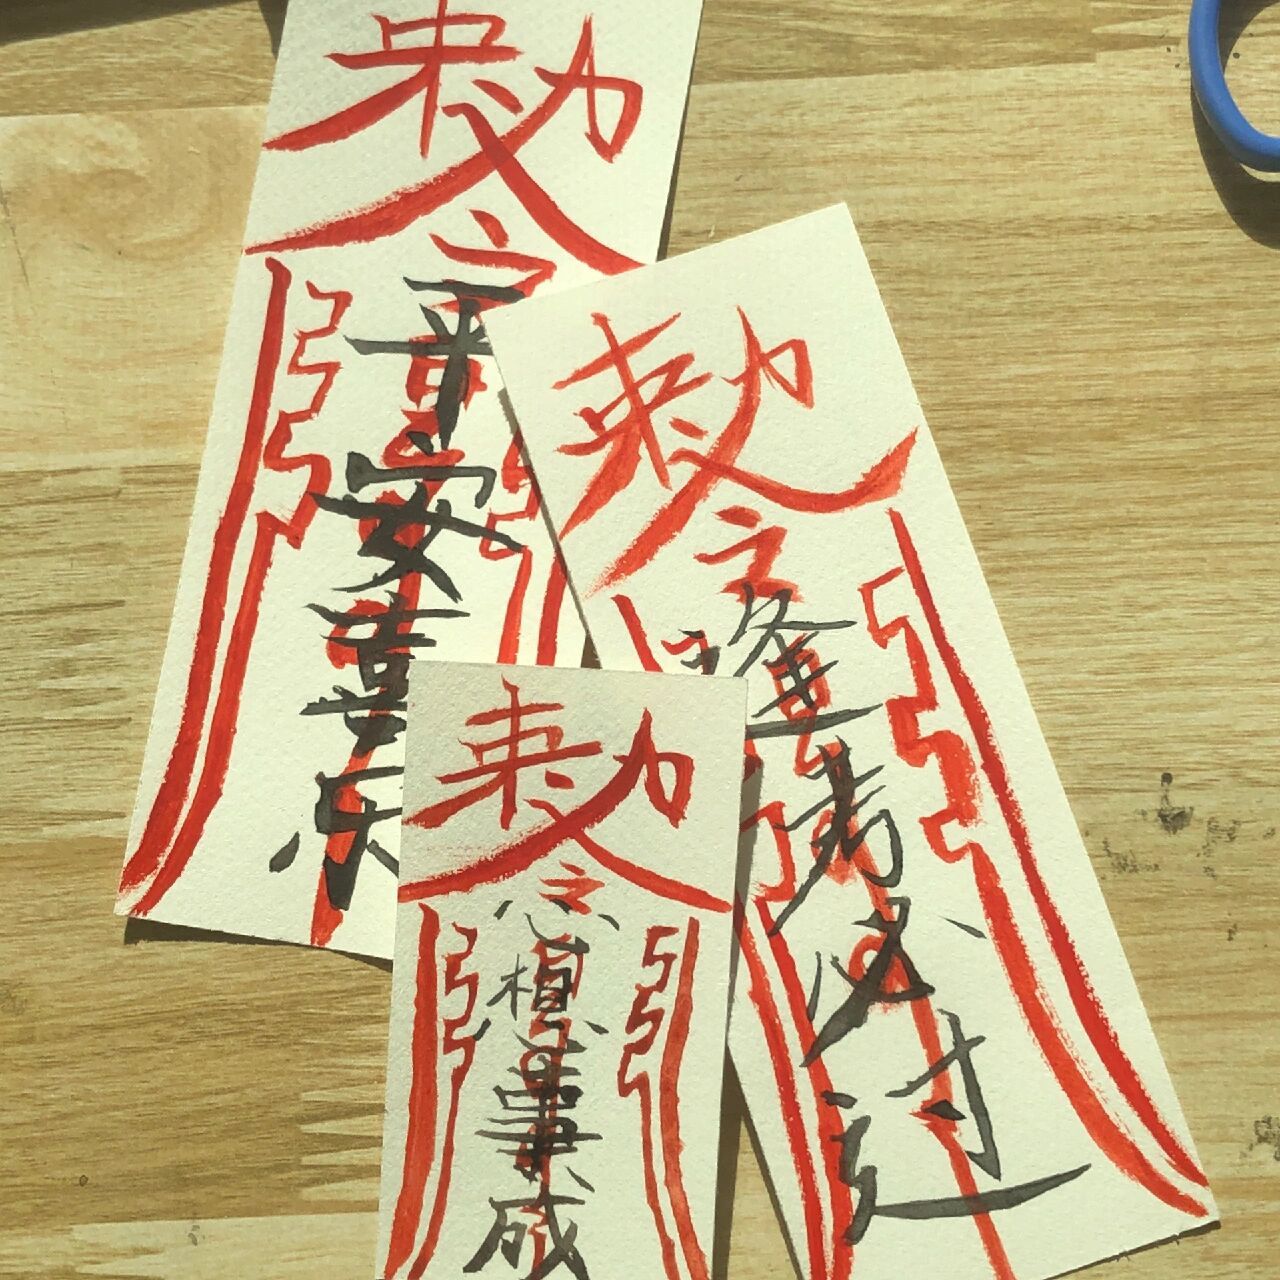 敕令
平安喜乐
敕令
逢考必过
敕令
心想事成